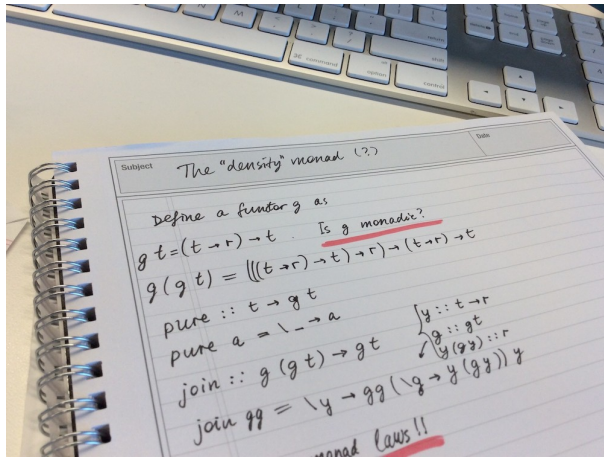 command
option
control
shift
Subject
The "density" monad (?)
Date
Define a functor g as
g t = (t → r) → t. Is g monadic?
g (g t) = (((t → r) → t) → r) → (t → r) → t
pure :: t → g t
pure a = \_ → a
join :: g (g t) → g t
y :: t → r
g :: g t
y (g y) :: r
join gg = \y → gg (\g → y (g y)) y
monad laws!!